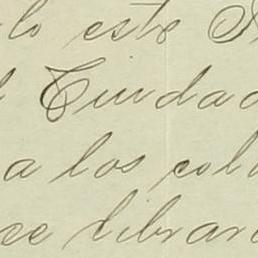 lo este
Ciudad
a los col
se librar